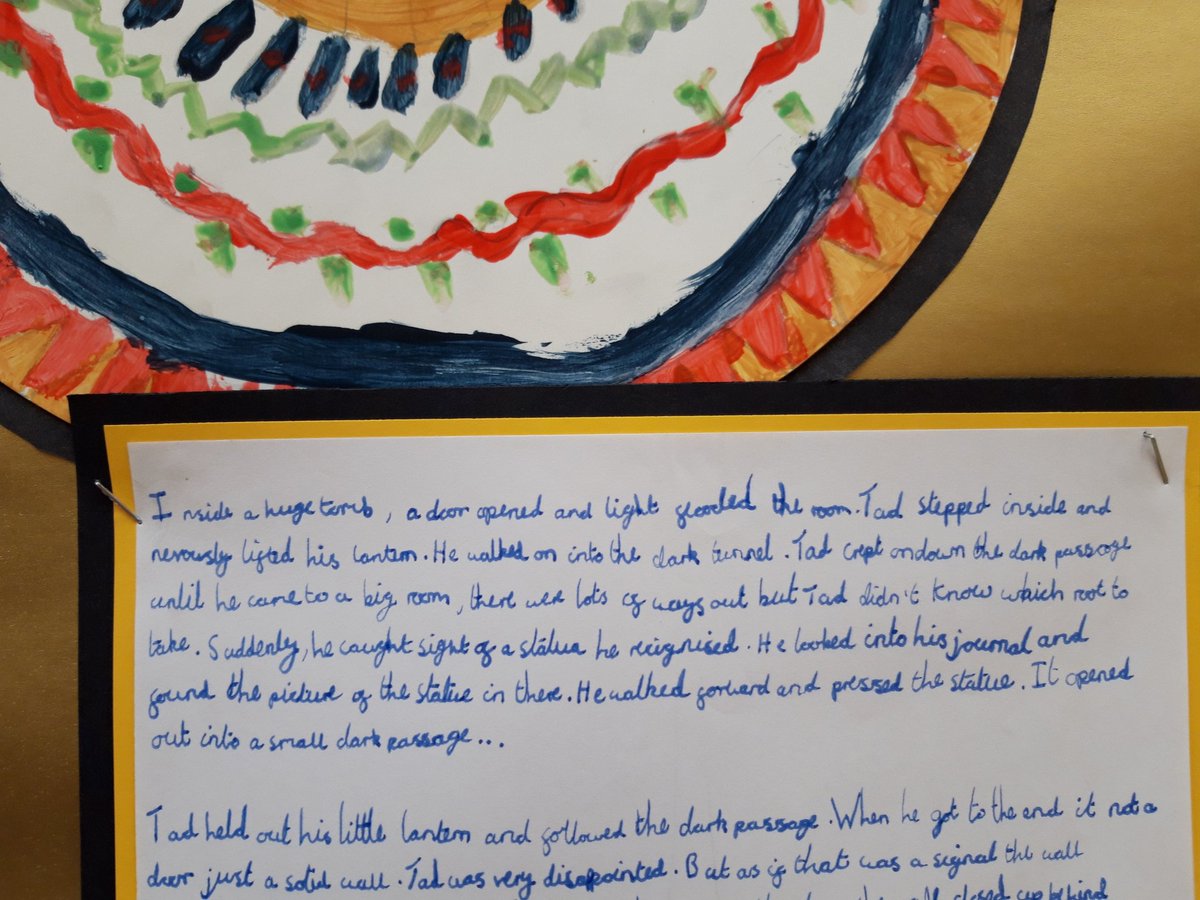 Inside a huge tomb, a door opened and light flooded the room. Tad stepped inside and
nervously lifted his lantern. He walked on into the dark tunnel. Tad crept on down the dark passage
until he came to a big room, there were lots of ways out but Tad didn't know which root to
take. Suddenly, he caught sight of a statue he recignised. He looked into his journal and
found the picture of the statue in there. He walked forward and pressed the statue. It opened
out into a small dark passage...
Tad held out his little lantern and followed the dark passage. When he got to the end it not a
door just a solid wall. Tad was very disapointed. But as if that was a signal the wall
closed up behind